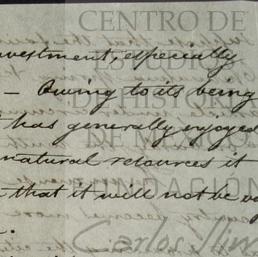 CENTRO DE
nvestment, especially
ESTUDIOS
— Owing to its being
DE HISTORIA
has generally enjoyed
DE MÉXICO
natural resources it
FUNDACIÓN
that it will not be
Carlos Slim